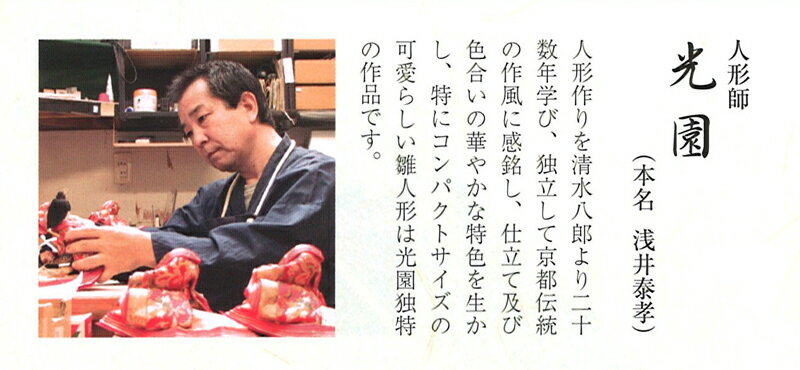 人形師
光園
(本名 浅井泰孝)
人形作りを清水八郎より二十
数年学び、独立して京都伝統
の作風に感銘し、仕立て及び
色合いの華やかな特色を生か
し、特にコンパクトサイズの
可愛らしい雛人形は光園独特
の作品です。